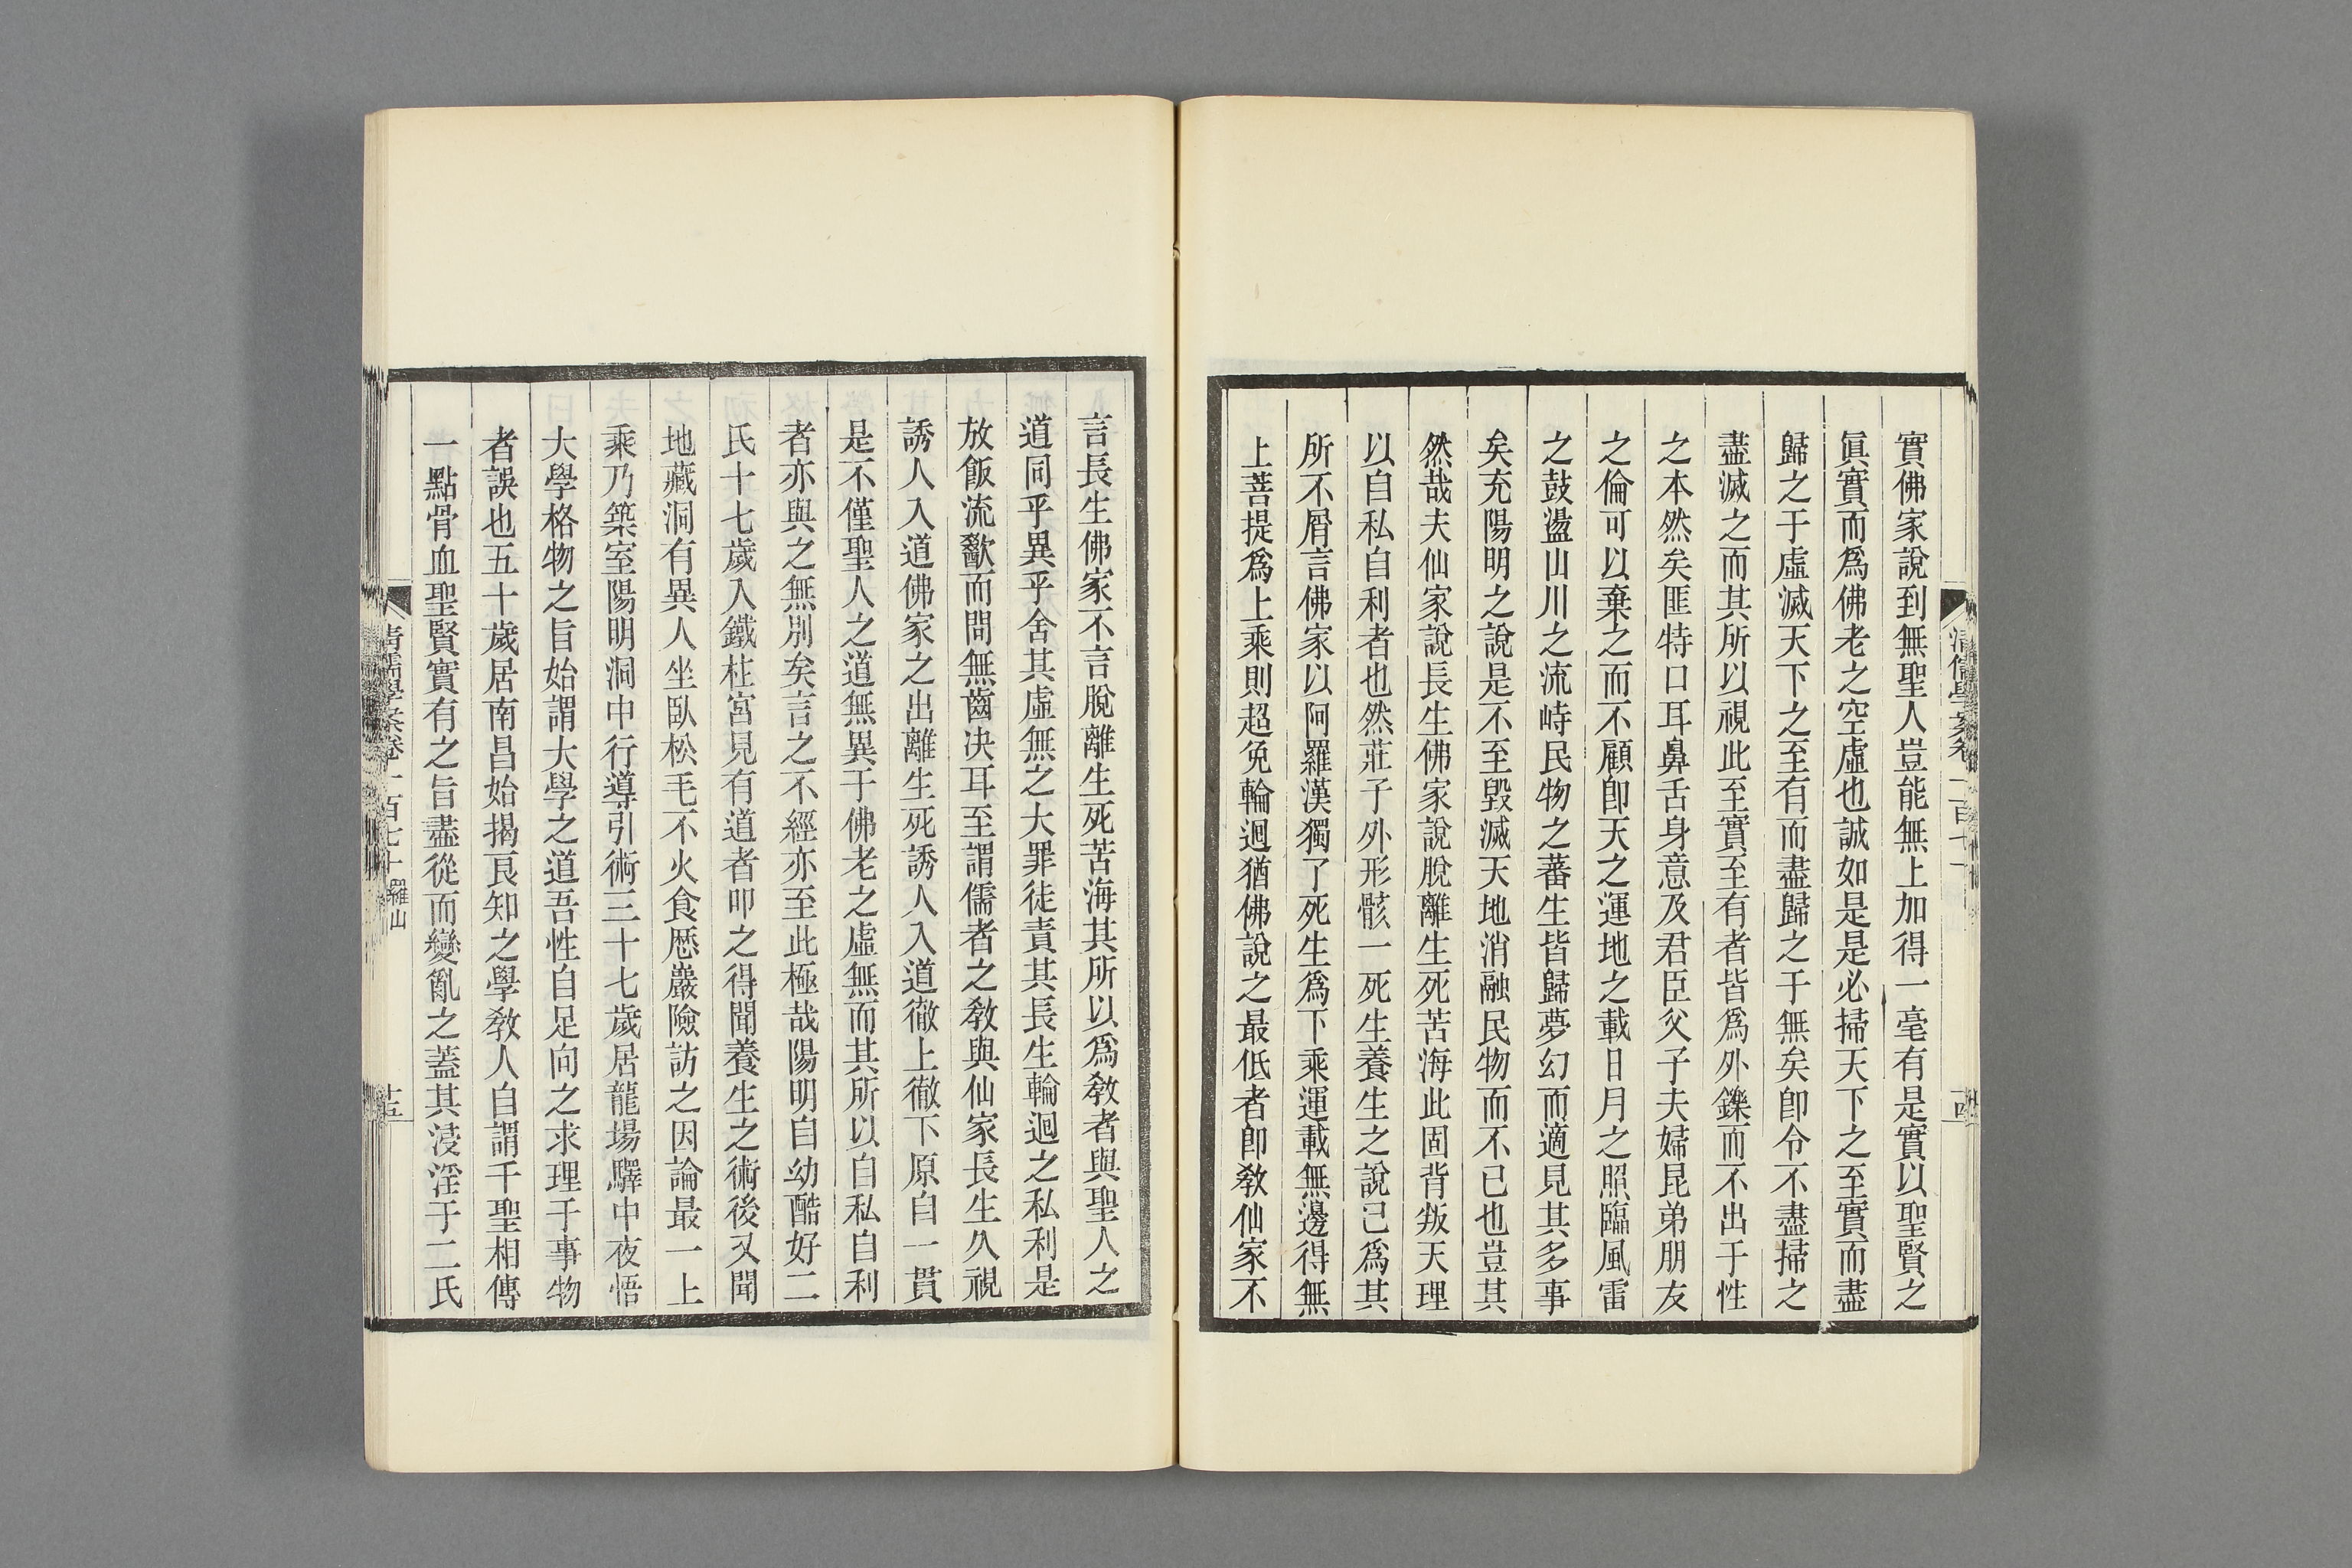 實佛家說到無聖人豈能無上加得一毫有是實以聖賢之
眞實而爲佛老之空虛也誠如是是必掃天下之至實而盡
歸之于虛滅天下之至有而盡歸之于無矣卽令不盡掃之
盡滅之而其所以視此至實至有者皆爲外鑠而不出于性
之本然矣匪特口耳鼻舌身意及君臣父子夫婦昆弟朋友
之倫可以棄之而不顧卽天之運地之載日月之照臨風雷
之鼓盪山川之流峙民物之蕃生皆歸夢幻而適見其多事
矣充陽明之說是不至毀滅天地消融民物而不已也豈其
然哉夫仙家說長生佛家說脫離生死苦海此固背叛天理
以自私自利者也然莊子外形骸一死生養生之說已爲其
所不屑言佛家以阿羅漢獨了死生爲下乘運載無邊得無
上菩提爲上乘則超免輪迴猶佛說之最低者卽敎仙家不
清儒學案卷一百七十
古
言長生佛家不言脫離生死苦海其所以爲敎者與聖人之
道同乎異乎舍其虛無之大罪徒責其長生輪迴之私利是
放飯流歠而問無齒決耳至謂儒者之敎與仙家長生久視
誘人入道佛家之出離生死誘人入道徹上徹下原自一貫
是不僅聖人之道無異于佛老之虛無而其所以自私自利
者亦與之無別矣言之不經亦至此極哉陽明自幼酷好二
氏十七歲入鐵柱宮見有道者叩之得聞養生之術後又聞
地藏洞有異人坐臥松毛不火食歷巖險訪之因論最一上
乘乃築室陽明洞中行導引術三十七歲居龍場驛中夜悟
大學格物之旨始謂大學之道吾性自足向之求理于事物
者誤也五十歲居南昌始揭良知之學敎人自謂千聖相傳
一點骨血聖賢實有之旨盡從而變亂之蓋其浸淫于二氏
清儒學案卷一百七十 羅山
十五